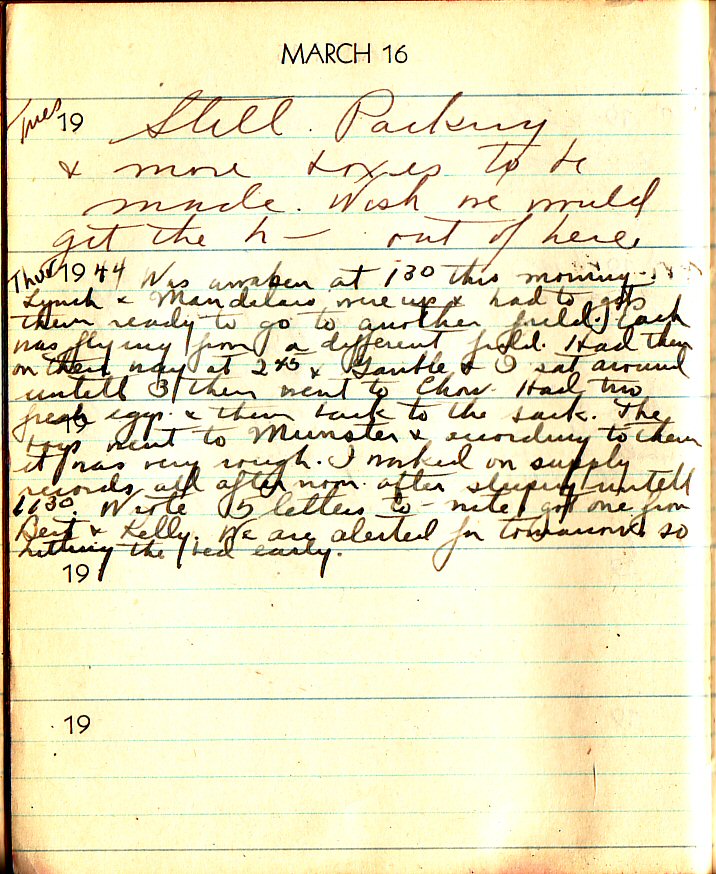 MARCH 16
Tues 19 Still Packing
& more boxes to be
made. Wish we would
get the h— out of here.
Thur 19 44 Was awaken at 130 this morning.
Lynch & were up & had to get
them ready to go to another field. Each
was flying from a different field. Had them
on their way at 2 45 & Gamble & I sat around
untell 3 then went to Chow. Had two
fresh eggs & then back to the sack. The
19
boys went to Munster & according to them
it was very rough. I worked on supply
records all afternoon after sleeping untell
1130. Wrote 5 letters to-nite, got one from
Bert & Kelly. We are alerted for tomorrow so
hitting the bed early.
19
19